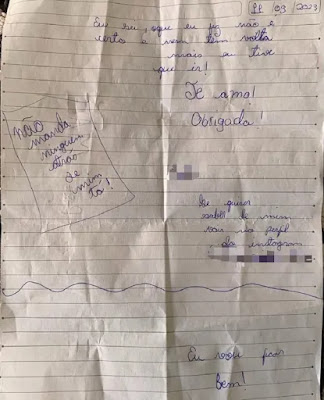 11 03 2023
Eu sei, oque eu fiz não é
certo e nem tem volta
mais eu tive
que ir!
Te amo!
Obrigada!
não
manda
ninguem
atrás
de
mim
tá!
Se quiser
saber de mim
vai no perfil
do instagram
Eu vou ficar
bem!